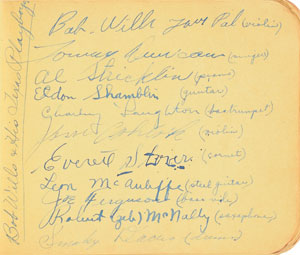 Bob Wills & His Texas Playboys
Bob Wills Your Pal (violin)
Tommy Duncan (singer)
Al Stricklin (piano)
Eldon Shamblin (guitar)
Charley Laughton (trumpet)
(violin)
Everett Stover (cornet)
Leon McAuliffe (steel guitar)
Joe Ferguson (bass viola)
Robert (Zeb) McNally (saxophone)
Smoky Dacus (drums)